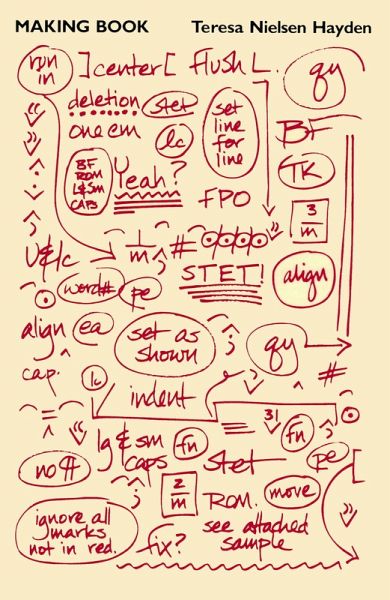 MAKING BOOK Teresa Nielsen Hayden
run in
]center[
flush L.
qy
deletion
stet
set line for line
one em
lc
BF
BF ROM L&Sm CAPS
Yeah?
TK
FPO
3/m
U&lc
1/m
#
STET!
align
word#
pe
align
ea
set as shown
qy
cap.
lc
#
indent
lg & sm caps
fn
3]
fn
stet
pe
no ¶
2/m
ROM.
move
ignore all marks not in red.
fix?
see attached sample